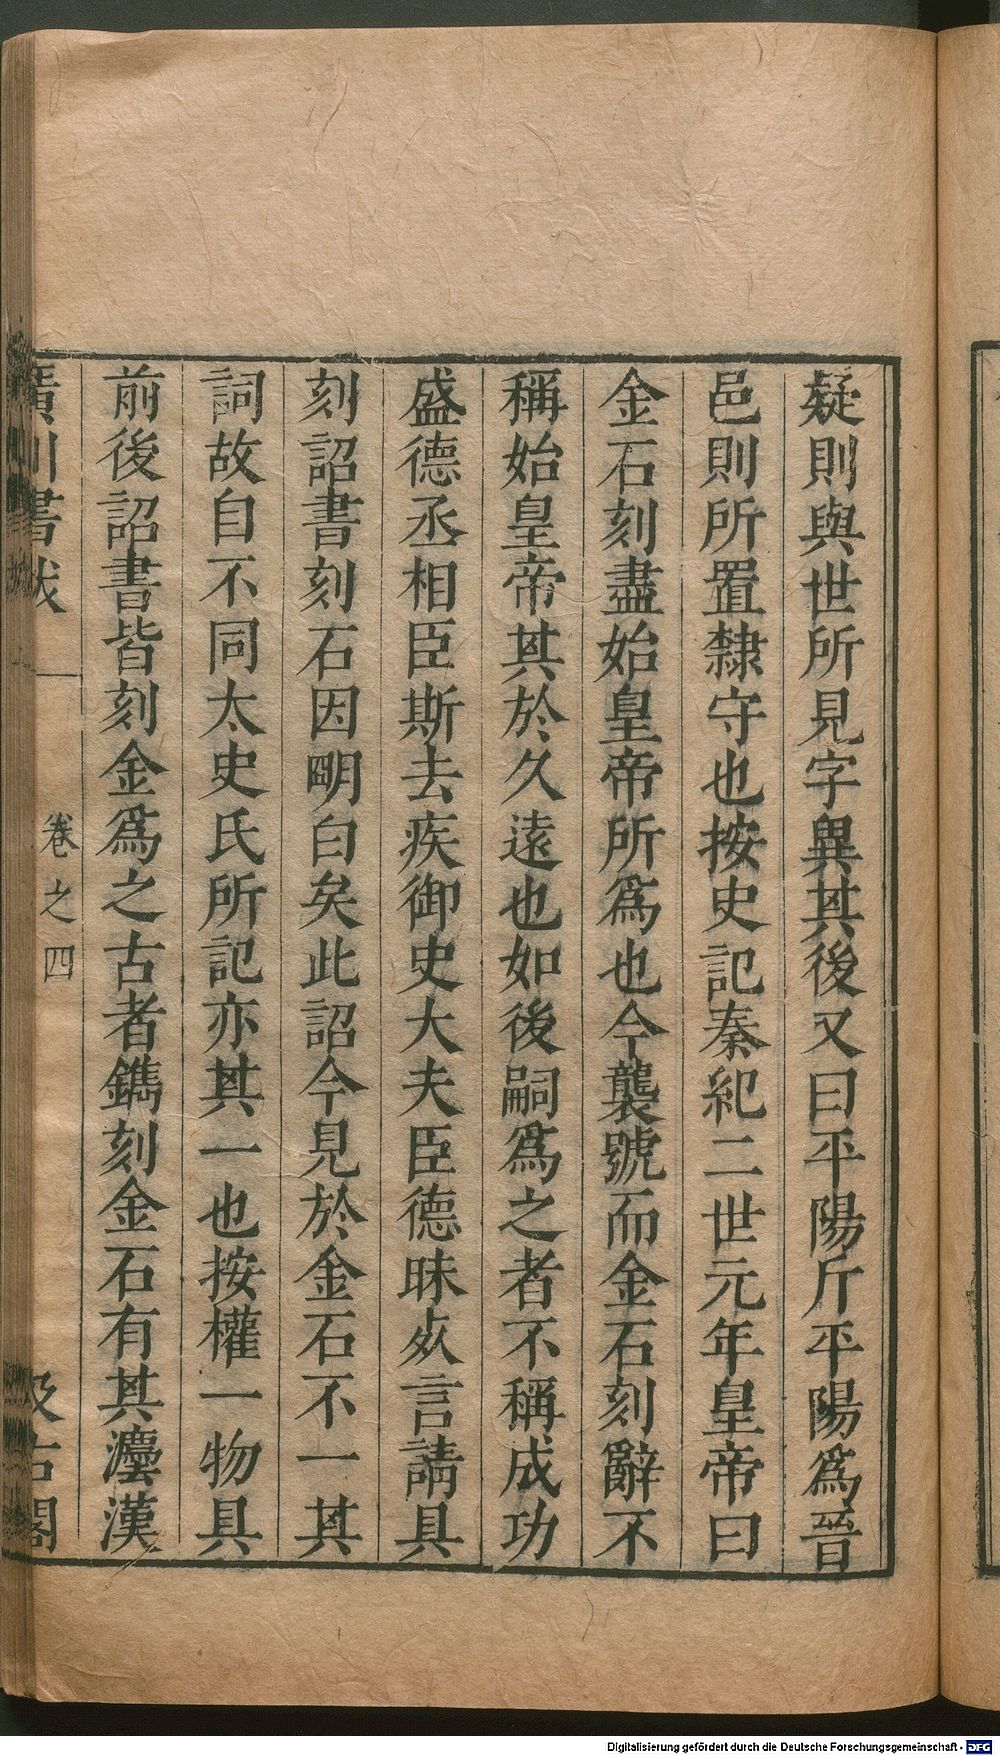 疑則與世所見字異其後又曰平陽斤平陽爲晉
邑則所置隸守也按史記秦紀二世元年皇帝曰
金石刻盡始皇帝所爲也今襲號而金石刻辭不
稱始皇帝其於久遠也如後嗣爲之者不稱成功
盛德丞相臣斯去疾御史大夫臣德昧奴言請具
刻詔書刻石因明白矣此詔今見於金石不一其
詞故自不同太史氏所記亦其一也按權一物具
前後詔書皆刻金爲之古者鐫刻金石有其灋漢
廣川書跋
卷之四
汲古閣
Digitalisierung gefördert durch die Deutsche Forschungsgemeinschaft - DFG